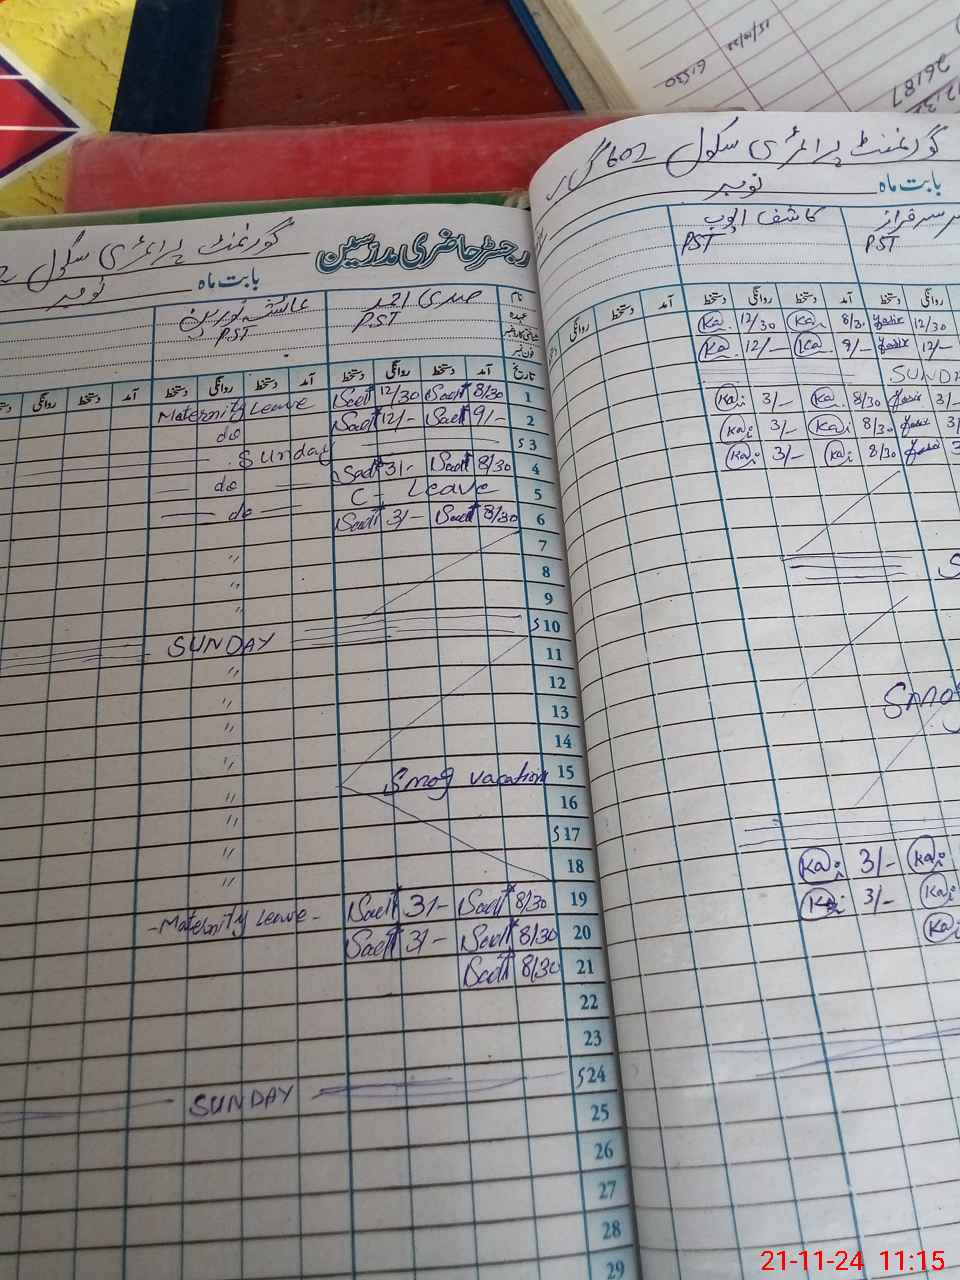 گورنمنٹ پرائمری سکول 602 گ ب
بابت ماہ نومبر
کاشف ایوب
سرفراز
PST
PST
آمد دستخط روانگی دستخط آمد دستخط روانگی
Ka 12/30 Ka 8/30 12/30
Ka 12/- Ka 9/- 12/-
SUNDA
Kai 3/- Ka 8/30 3/-
Kai 3/- Kai 8/30 3/
Kai 3/- Kai 8/30 3
S
Smog
Kai 3/- Kai
Kai 3/- Kai
Kai
رجسٹر حاضری مدرسین
گورنمنٹ پرائمری سکول
بابت ماہ نومبر
نام
عہدہ
شناختی کارڈ نمبر
فون نمبر
PST
PST
تاریخ آمد دستخط روانگی دستخط آمد دستخط روانگی دستخط آمد دستخط روانگی
1 8/30 Sadi 12/30 Sadi Maternity Leave
2 9/- Sadi 12/- Sadi do
S 3 Sunday
4 8/30 Sadi 3/- Sadi do
5 C - Leave do
6 8/30 Sadi 3/- Sadi
7 "
8 "
9 "
S 10 SUNDAY
11 "
12 "
13 "
14 "
15 Smog vacation "
16 "
S 17 "
18 "
19 8/30 Sadi 3/- Sadi
20 8/30 Sadi 3/- Sadi -Maternity Leave-
21 8/30 Sadi
22
23
S 24 SUNDAY
25
26
27
28
29
15/10/22
6130
26187
21-11-24 11:15